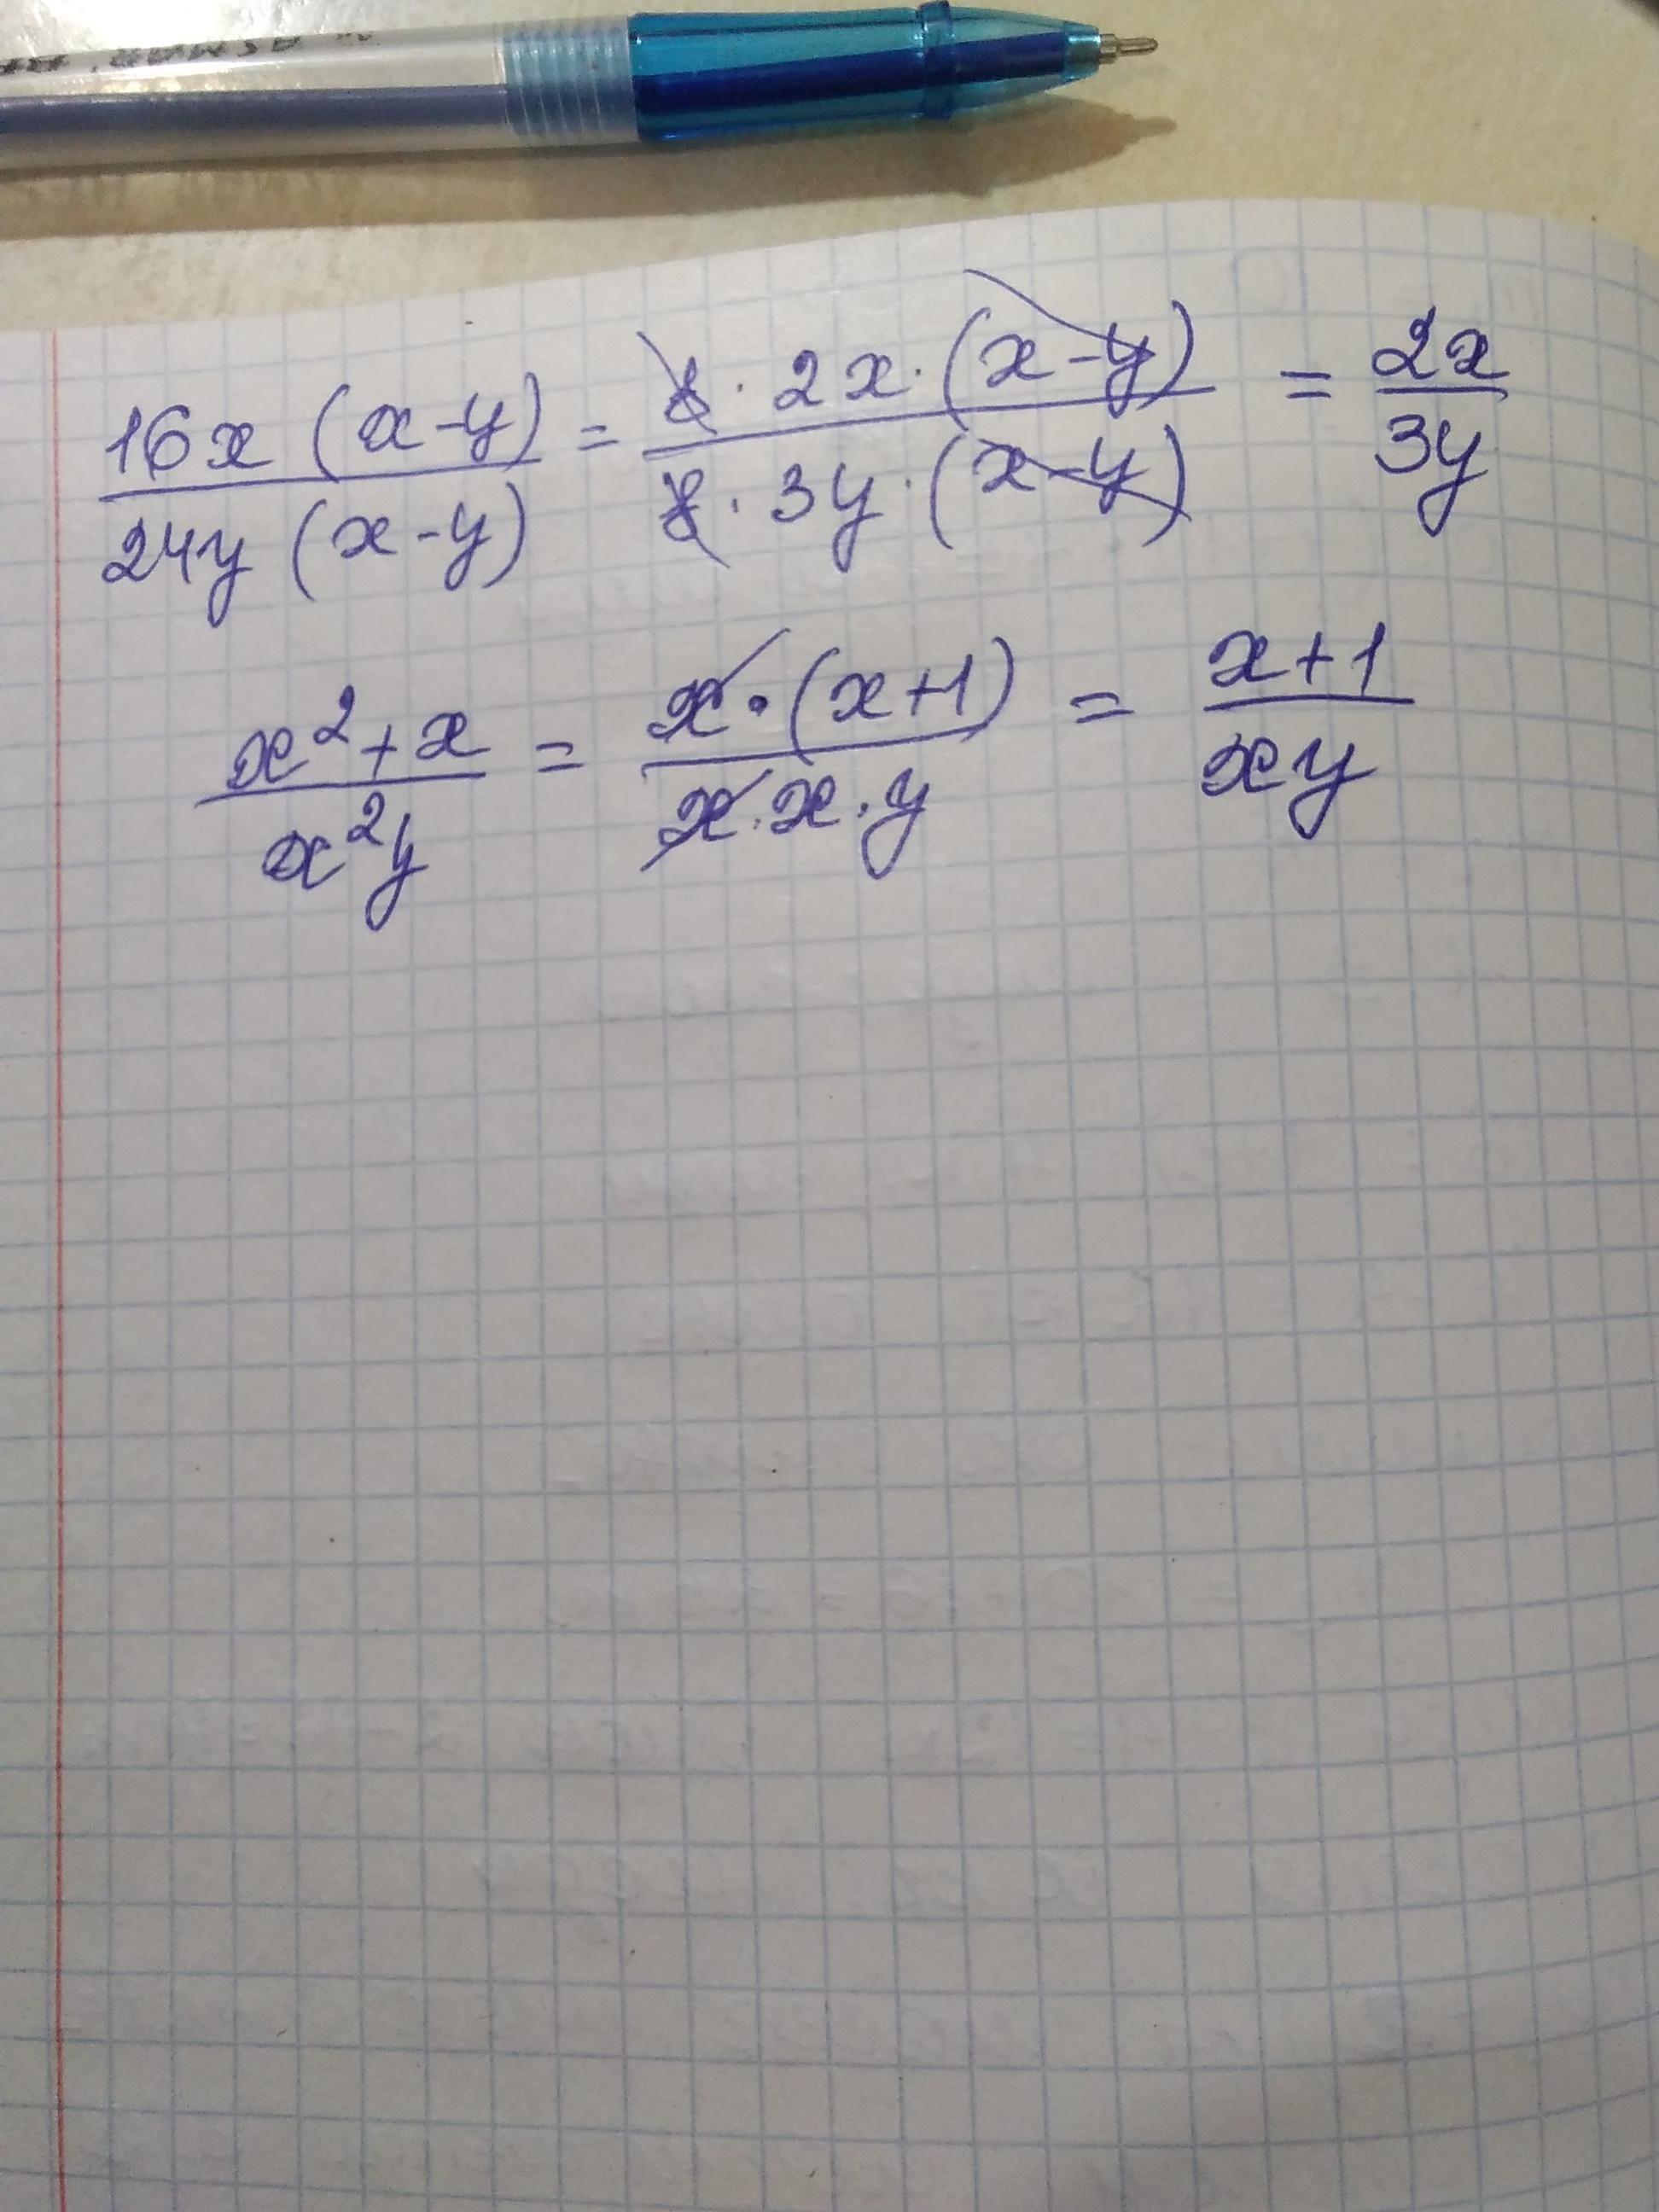 16x(x-y)/24y(x-y) = 8·2x·(x-y)/8·3y·(x-y) = 2x/3y
x²+x/x²y = x·(x+1)/x·x·y = x+1/xy